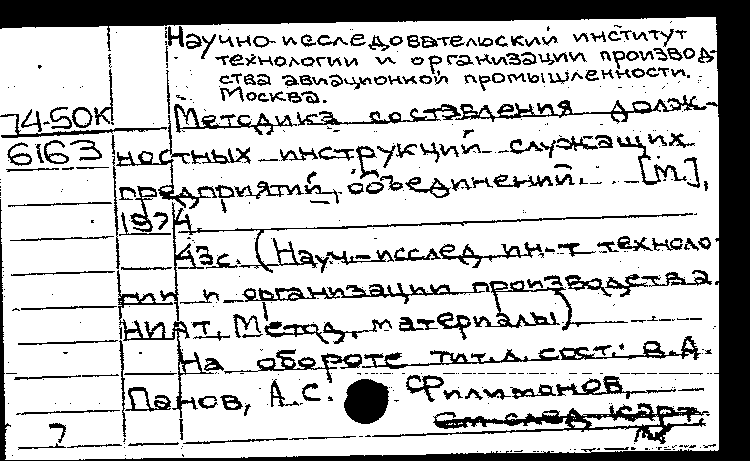 Научно-исследовательский институт
технологии и организации производ-
ства авиационной промышленности.
Москва.
74-50К
Методика составления долж-
6163
ностных инструкций служащих
предприятий, объединений. [М.],
1974.
43с. (Науч.-исслед. ин-т техноло-
гии и организации производства.
НИАТ. Метод. материалы).
На обороте тит.л. сост.: В.А.
Панов, А.С. Филимонов,
См след. карт.
7